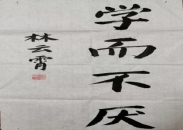 学而不厌
林云霄